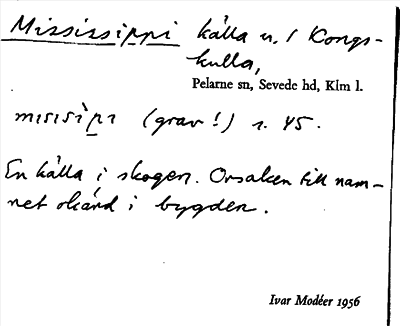 Mississippi källa u. / Kongs-
kulla,
Pelarne sn, Sevede hd, Klm l.
misisìpi (grav!) s. 45.
En källa i skogen. Orsaken till nam-
net okänd i bygden.
Ivar Modéer 1956